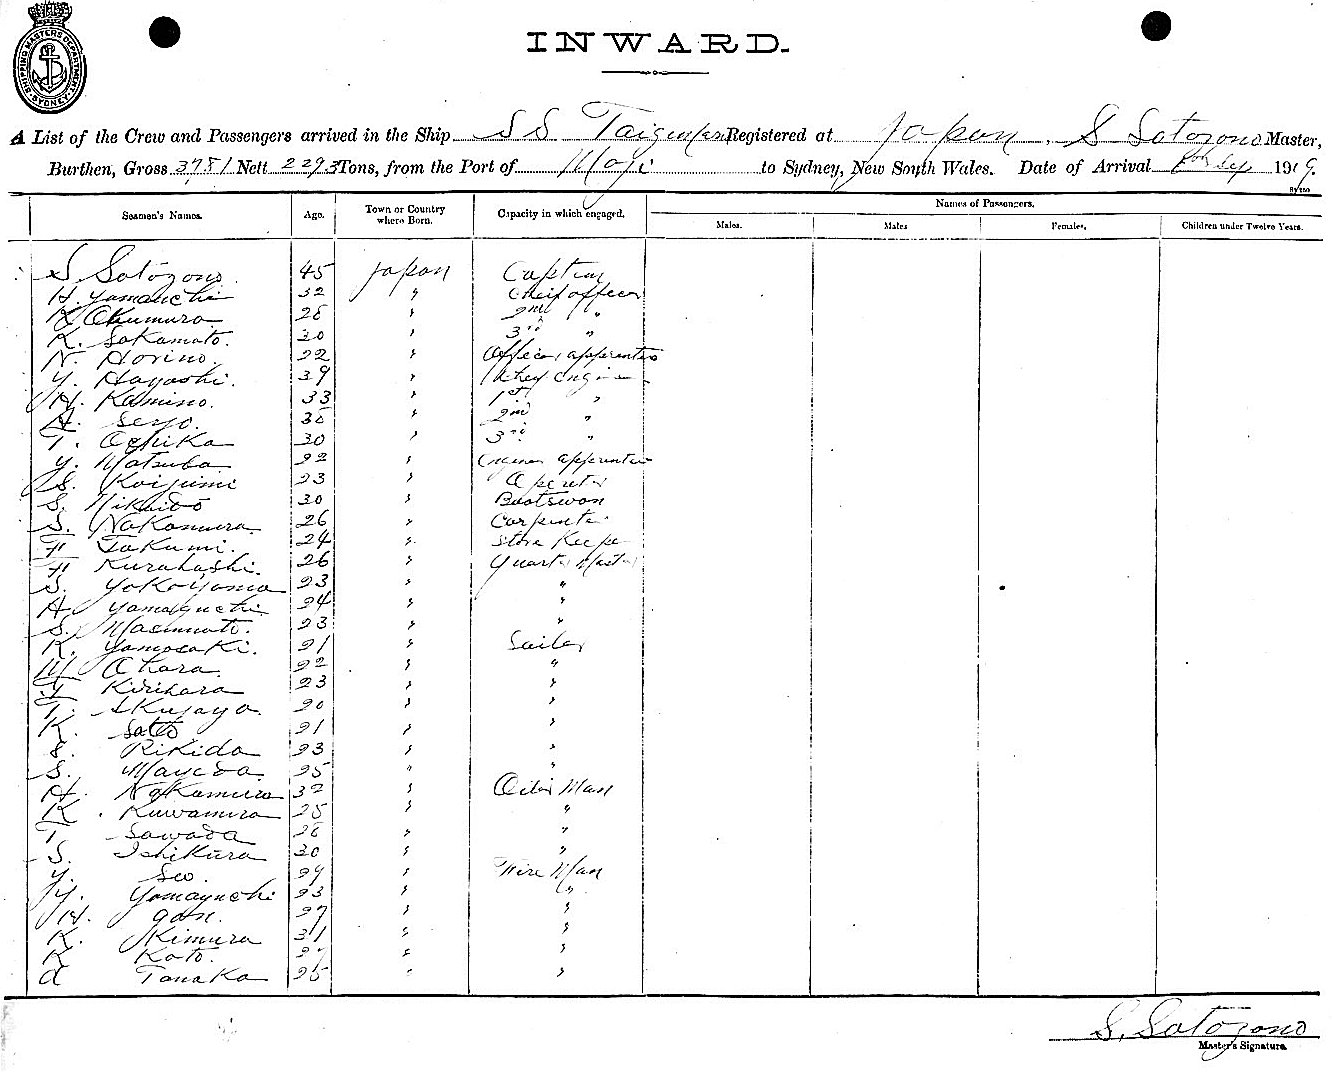 SHIPPING MASTERS DEPARTMENT. SYDNEY.
INWARD.
A List of the Crew and Passengers arrived in the Ship SS Registered at Japan, S Satozono Master,
Burthen, Gross 3751 Nett 2293 Tons, from the Port of Moji to Sydney, New South Wales. Date of Arrival 1919.
Seamen's Names. Age. Town or Country where Born. Capacity in which engaged. Names of Passengers.
Males. Males Females. Children under Twelve Years.
S Satozono. 45 Japan Captin
H. Yamauchi 32 " Cheif officer
K. Okumura 28 " 2nd "
K. Sakamoto. 30 " 3rd "
N. Horino. 22 " Officer apprentis
Y. Hayashi. 39 " Chief Engine
H. Kamino. 33 " 1st "
H. Seijo. 35 " 2nd "
T. Ochika 30 " 3rd "
Y. Matsuba 22 " Engineer apprentis
S. Koizumi 23 "
S. Nikaido 30 " Boatswan
S. Nakamura 26 " Carpenter
F. Takumi. 24 " Store Keepe
F. Kurahashi. 26 " Quarter Master
S. Yokoyama 23 " "
H. Yamaguchi 24 " "
S. 23 " "
K. Yamasaki. 21 " Sailor
M Ohara 22 " "
Y Kirihara 23 " "
T. 20 " "
K. Satto 21 " "
S. Rikida 23 " "
S. Mayeda. 25 " "
H. Nakamura 32 " Oiler Man
K. Kuwamura 25 " "
T Sawada 26 " "
S. Ichikura 30 " "
Y. Seo. 29 " Fire Man
Y. Yamaguchi 23 " "
H. 27 " "
K. Kimura 31 " "
K Kato. 27 " "
a Tanaka 25 " "
S. Satozono
Master's Signature